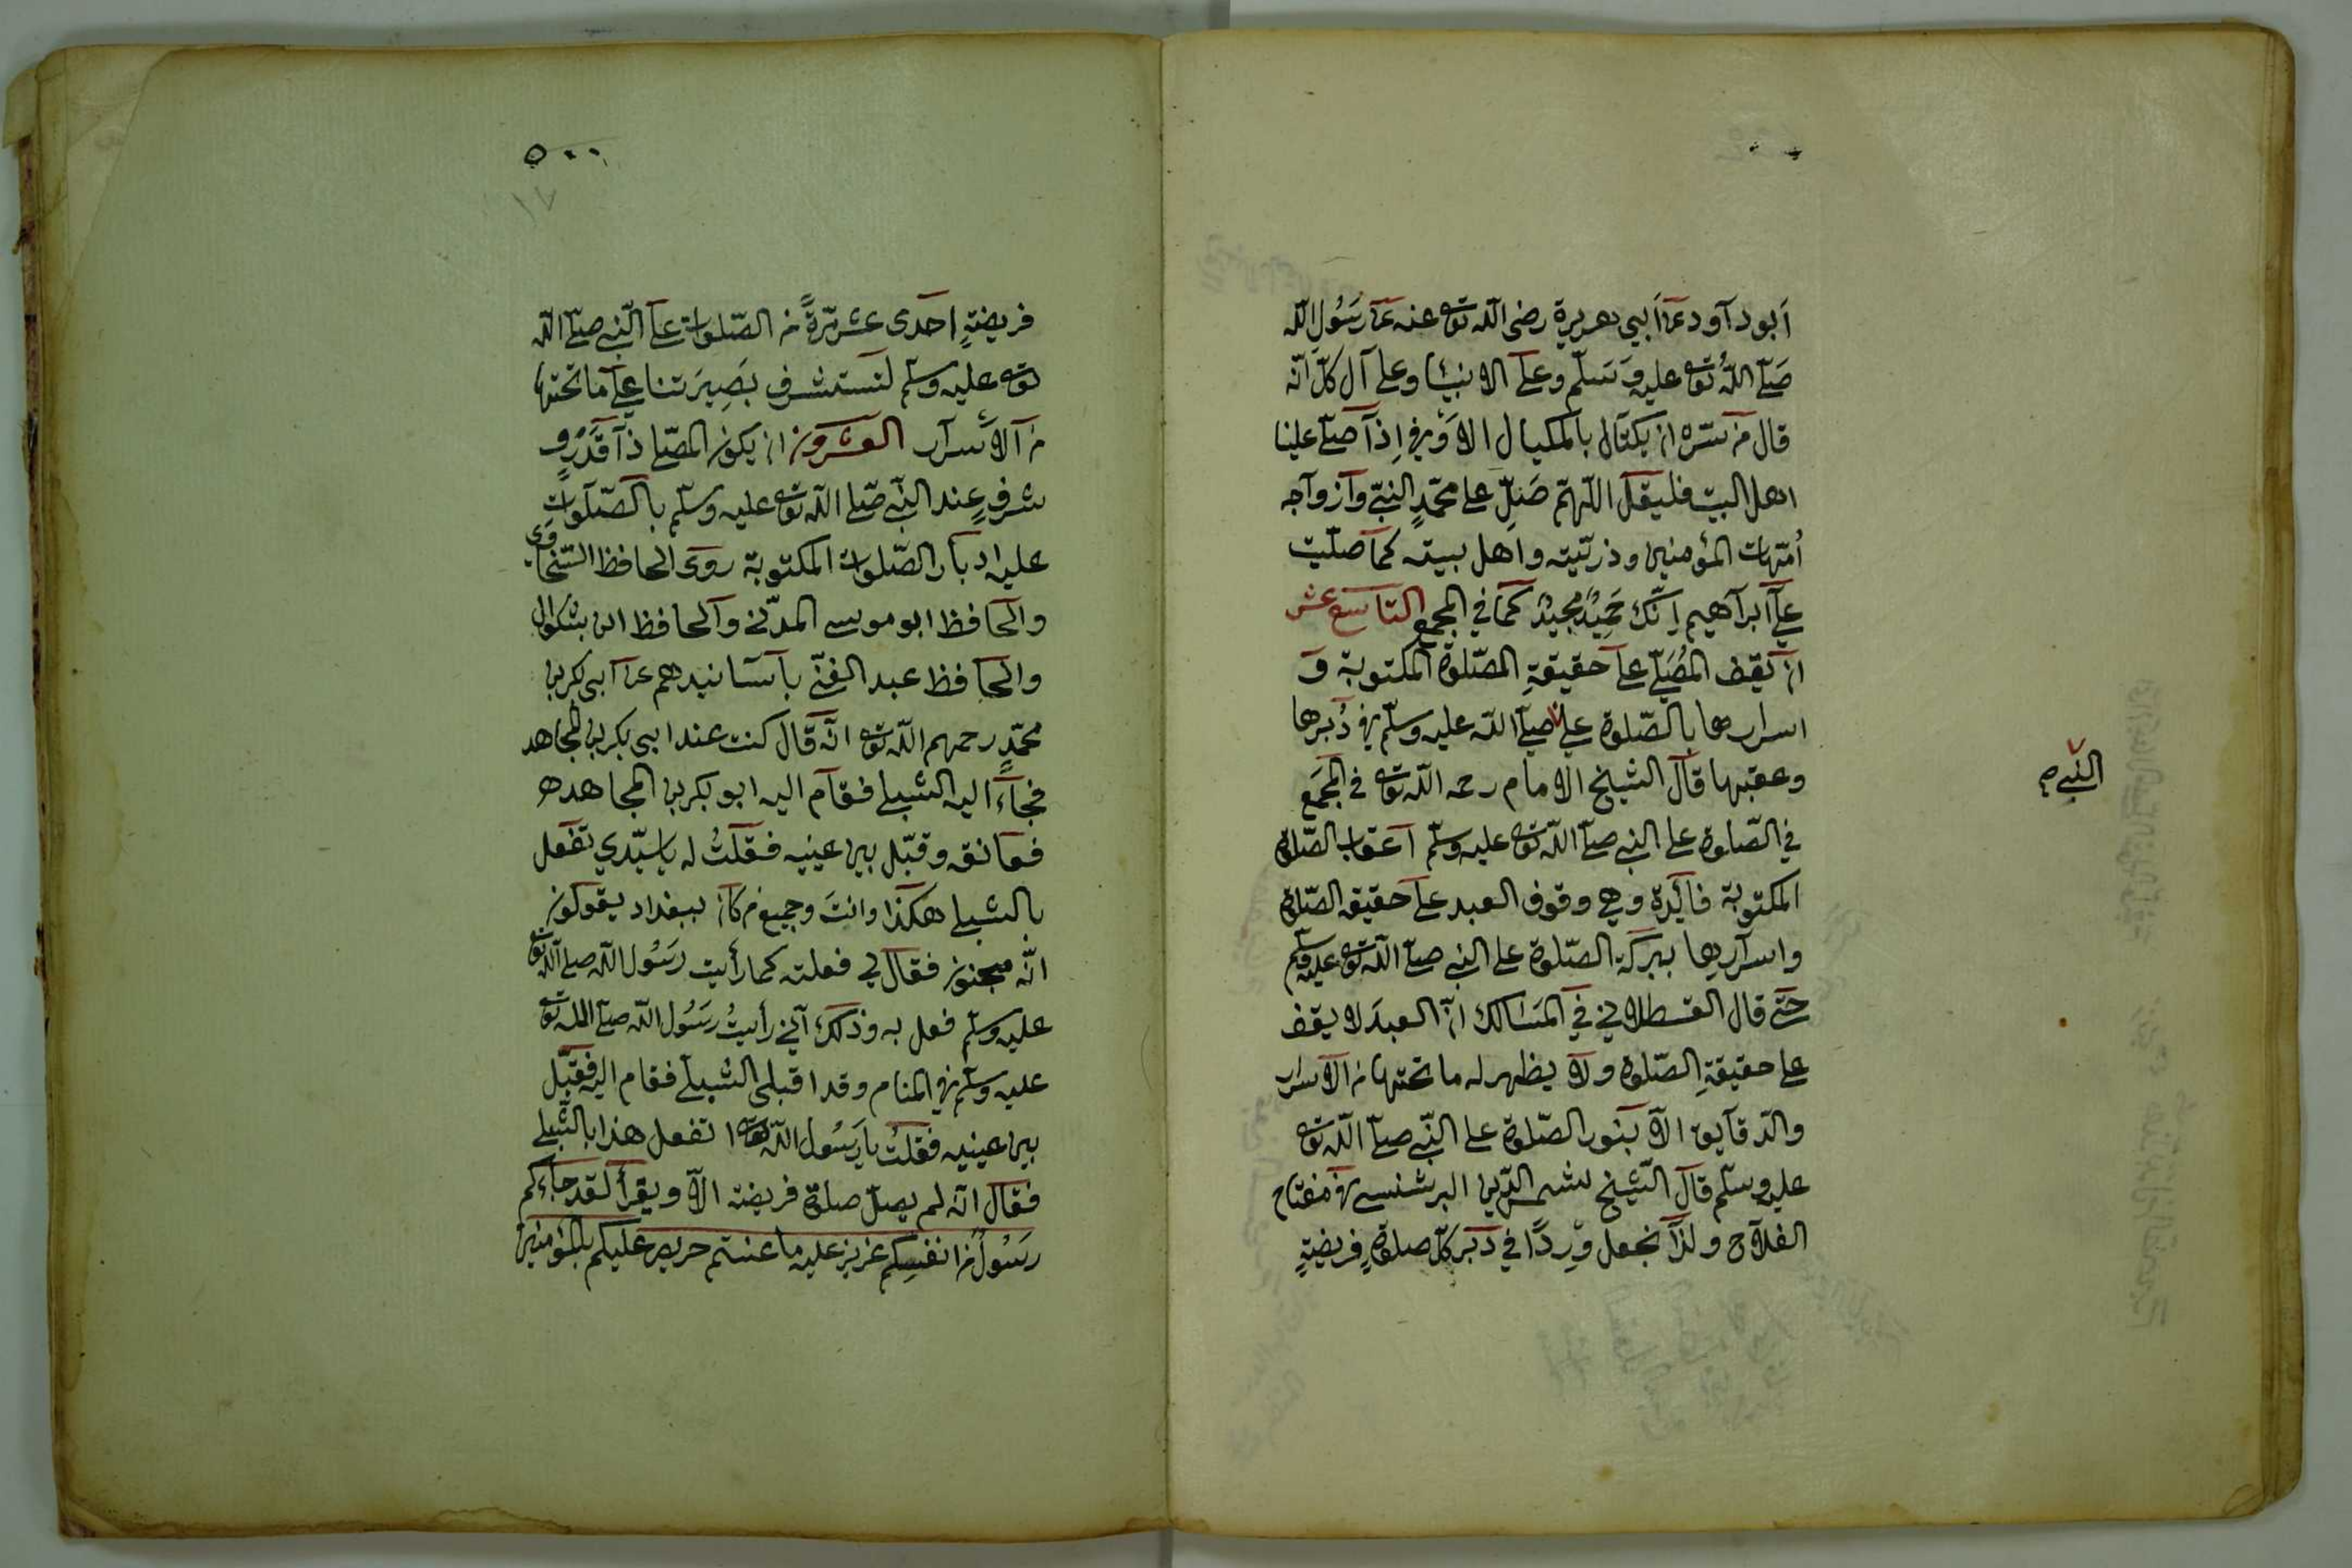 أبو داود عن أبي هريرة رضى الله تعه عنه عن رسول الله
صلى الله تعه عليه وسلم وعلى الانبياء وعلى آل كل انه
قال من سره ان يكتال بالمكيال الاوفى اذا صلى علينا
اهل البيت فليقل اللهم صل على محمد النبي وازواجه
أمهات المؤمنين وذريته واهل بيته كما صليت
على ابراهيم انك حميد مجيد كما في المجمع التاسع عشر
ان يقف المصلي على حقيقة الصلوة المكتوبة و
اسرارها بالصلوة على صلى الله عليه وسلم في دبرها
النبي صح
وعقبها قال الشيخ الامام رحمه الله تعه في المجمع
في الصلوة على النبي صلى الله تعه عليه وسلم اعقاب الصلوة
المكتوبة فائدة وهي وقوف العبد على حقيقة الصلوة
واسرارها ببركة الصلوة على النبي صلى الله تعه عليه وسلم
حتى قال القسطلاني في المسالك ان العبد لا يقف
على حقيقة الصلوة ولا يظهر له ما تحتها من الاسرار
والدقايق الا بنور الصلوة على النبي صلى الله تعه
عليه وسلم قال الشيخ شمس الدين البرشنسي في مفتاح
الفلاح ولذا نجعل وردا في دبر كل صلوة فريضة
٥٠٠
٨١
فريضة احدى عشر مرة من الصلوات على النبي صلى الله
تعه عليه وسلم لتستشرف بصيرتنا على ما تحتها
من الاسرار العشرون ان يكون المصلي ذا قدر و
شرف عند النبي صلى الله تعه عليه وسلم بالصلوات
عليه ادبار الصلوات المكتوبة روى الحافظ السخاوى
والحافظ ابو موسى المدني والحافظ ابن بشكوال
والحافظ عبد الغني باسانيدهم عن ابي بكر بن
محمد رحمهم الله تعه انه قال كنت عند ابي بكر بن المجاهد
فجاء اليه الشبلي فقام اليه ابو بكر بن المجاهد
فعانقه وقبل بين عينيه فقلت له يا سيدي تفعل
بالشبلي هكذا وانت وجميع من كان ببغداد يقولون
انه مجنون فقال لي فعلته كما رأيت رسول الله صلى الله تعه
عليه وسلم فعل به وذلك اني رأيت رسول الله صلى الله تعه
عليه وسلم في المنام وقد اقبل الشبلي فقام اليه فقبل
بين عينيه فقلت يا رسول الله تعه ا تفعل هذا بالشبلي
فقال انه لم يصل صلوة فريضة الا ويقرأ لقد جاءكم
رسول من انفسكم عزيز عليه ما عنتم حريص عليكم بالمؤمنين